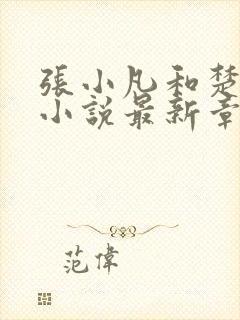 張小凡和楚
小說最新章
范偉